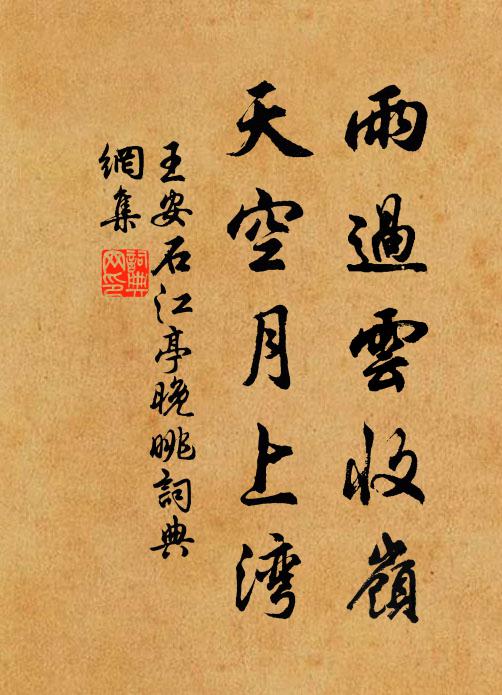 雨過雲收嶺
天空月上湾
王安石江亭晚眺詞典
網集
詞典
网印